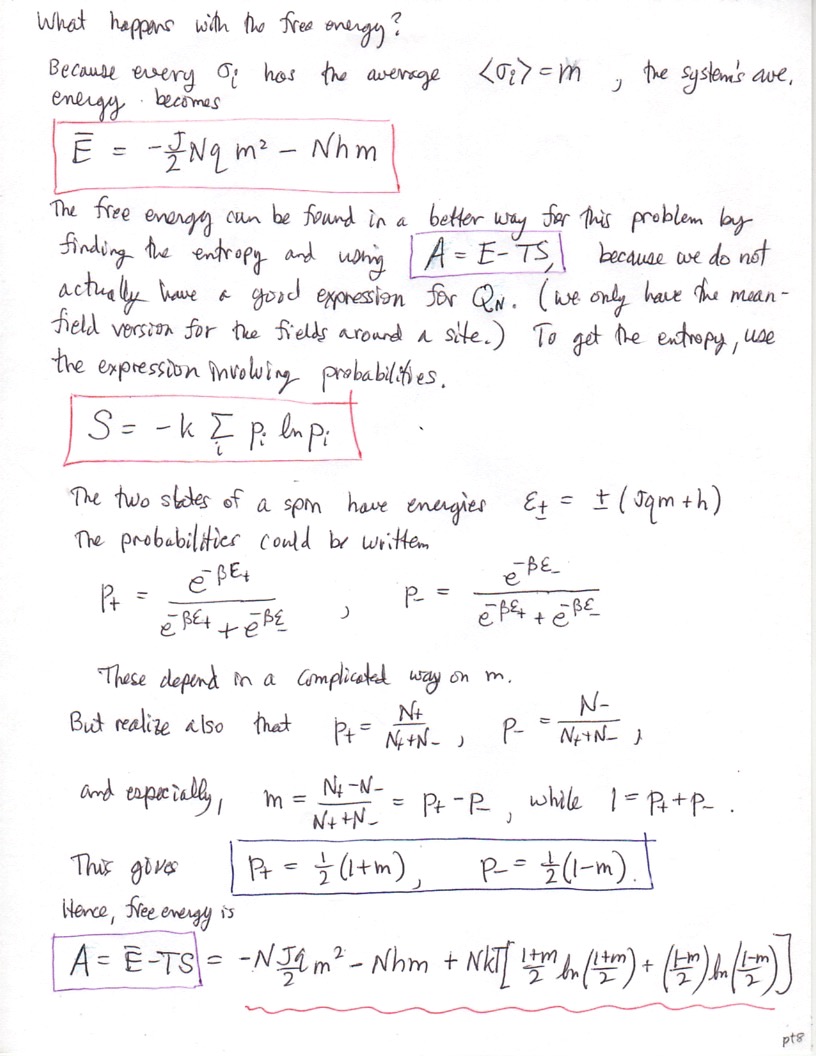 What happens with the free energy?
Because every σᵢ has the average ⟨σᵢ⟩ = m , the system's ave.
energy becomes
Ē = -J/2 Nq m² - Nhm
The free energy can be found in a better way for this problem by
finding the entropy and using A = E - TS, because we do not
actually have a good expression for Q_N. (we only have the mean-
field version for the fields around a site.) To get the entropy, use
the expression involving probabilities.
S = -k Σᵢ pᵢ ln pᵢ
The two states of a spin have energies ε± = ±(Jqm + h)
The probabilities could be written
p₊ = e^{-βε₊} / (e^{-βε₊} + e^{-βε₋}) , p₋ = e^{-βε₋} / (e^{-βε₊} + e^{-βε₋})
These depend in a complicated way on m.
But realize also that p₊ = N₊/(N₊+N₋) , p₋ = N₋/(N₊+N₋) ,
and especially, m = (N₊-N₋)/(N₊+N₋) = p₊ - p₋ , while 1 = p₊ + p₋ .
This gives p₊ = ½(1+m), p₋ = ½(1-m).
Hence, free energy is
A = Ē - TS = -N Jq/2 m² - Nhm + NkT[ (1+m)/2 ln((1+m)/2) + ((1-m)/2) ln((1-m)/2) ]
pt8